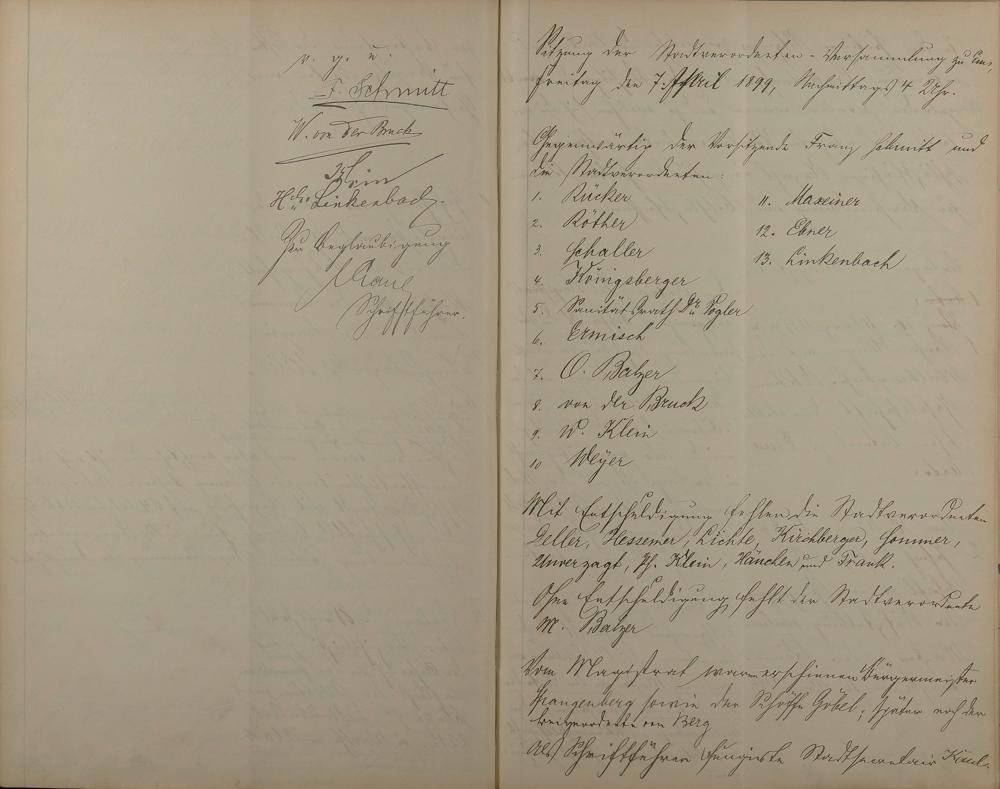 v. g. u.
F. Schmitt
W. von der Bruck
Klein
Hch. Linkenbach.
Zur Beglaubigung
Kaul
Schriftführer.
Sitzung der Stadtverordneten-Versammlung zu Ems,
Freitag den 7. April 1899, Nachmittags 4 Uhr.
Gegenwärtig der Vorsitzende Franz Schmitt und
die Stadtverordneten:
1. Rücker
2. Röther
3. Schaller
4. Königsberger
5. Sanitätsrath Dr. Vogler
6. Ermisch
7. O. Balzer
8. von der Bruck
9. W. Klein
10 Weyer
11. Maxeiner
12. Ebner
13. Linkenbach
Mit Entschuldigung fehlen die Stadtverordneten
Deller, Hessemer, Lichte, Kirchberger, Sommer,
Unverzagt, Ph. Klein, Hänchen und Frank.
Ohne Entschuldigung fehlt der Stadtverordnete
M. Balzer
Vom Magistrat waren erschienen Bürgermeister
Spangenberg sowie der Schöffe Göbel; später noch der
Beigeordnete von Berg
Als Schriftführer fungirte Stadtsecretair Kaul.